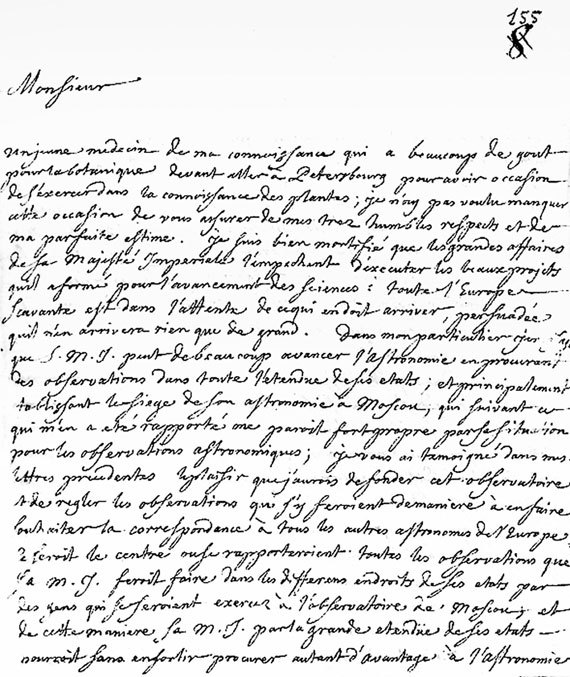 155
8
Monsieur
un jeune medecin de ma connoissance qui a beaucoup de gout
pour la botanique devant aller à Petersbourg pour avoir occasion
de s'exercer dans la connoissance des plantes; je n'ay pas voulu manquer
cette occasion de vous assurer de mes trez humbles respects et de
ma parfaite estime. je suis bien mortifié que les grandes affaires
de sa Majesté Imperiale l'empechent d'executer les beaux projets
qu'il a formé pour l'avancement des sciences: toute l'Europe
scavante est dans l'attente de ce qui en doit arriver, persuadée
qu'il n'en arrivera rien que de grand. Dans mon particulier
que S. M. I. peut de beaucoup avancer l'Astronomie en procurant
des observations dans toute l'etendue de ses etats; et principalement
etablissant le siege de son astronomie a Moscou, qui suivant ce
qui m'en a eté rapporté me paroit fort propre par sa situation
pour les observations astronomiques; je vous ai temoigné dans mes
lettres precedentes le plaisir que j'aurois de fonder cet observatoire
et de regler les observations qui s'y feroient de maniere à en faire
la correspondance à tous les autres astronomes de l'Europe
seroit le centre ou se rapporteroient toutes les observations que
sa M. I. feroit faire dans les differens endroits de ses etats par
des gens qui se seroient exercez à l'observatoire de Moscou; et
de cette maniere sa M. I. par la grande etendue de ses etats
pourroit sans en sortir procurer autant d'avantage à l'Astronomie